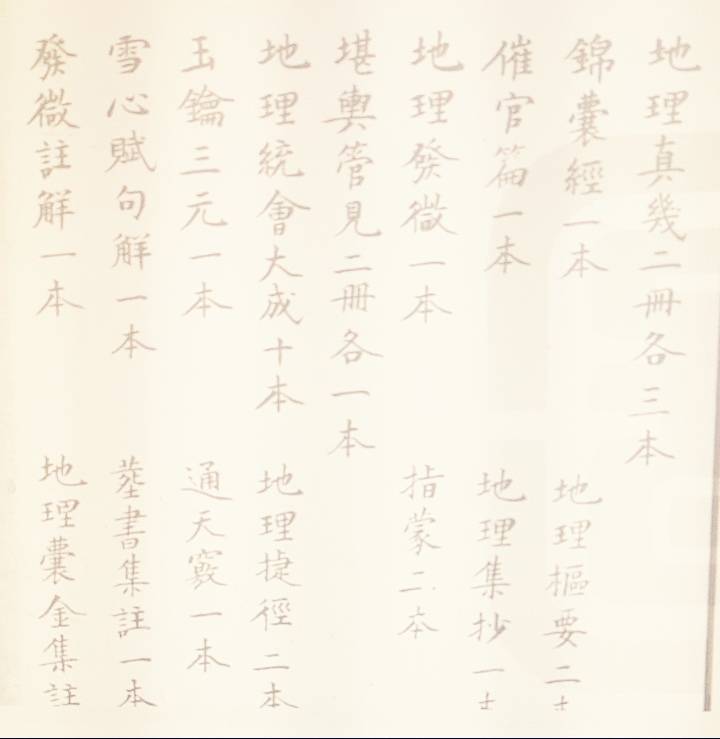 地理真幾二冊各三本
錦囊經一本
地理樞要二
催官篇一本
地理集抄一
地理發微一本
指蒙二本
堪輿管見二冊各一本
地理統會大成十本
地理捷徑二本
玉鑰三元一本
通天竅一本
雪心賦句解一本
葬書集註一本
發微註解一本
地理囊金集註